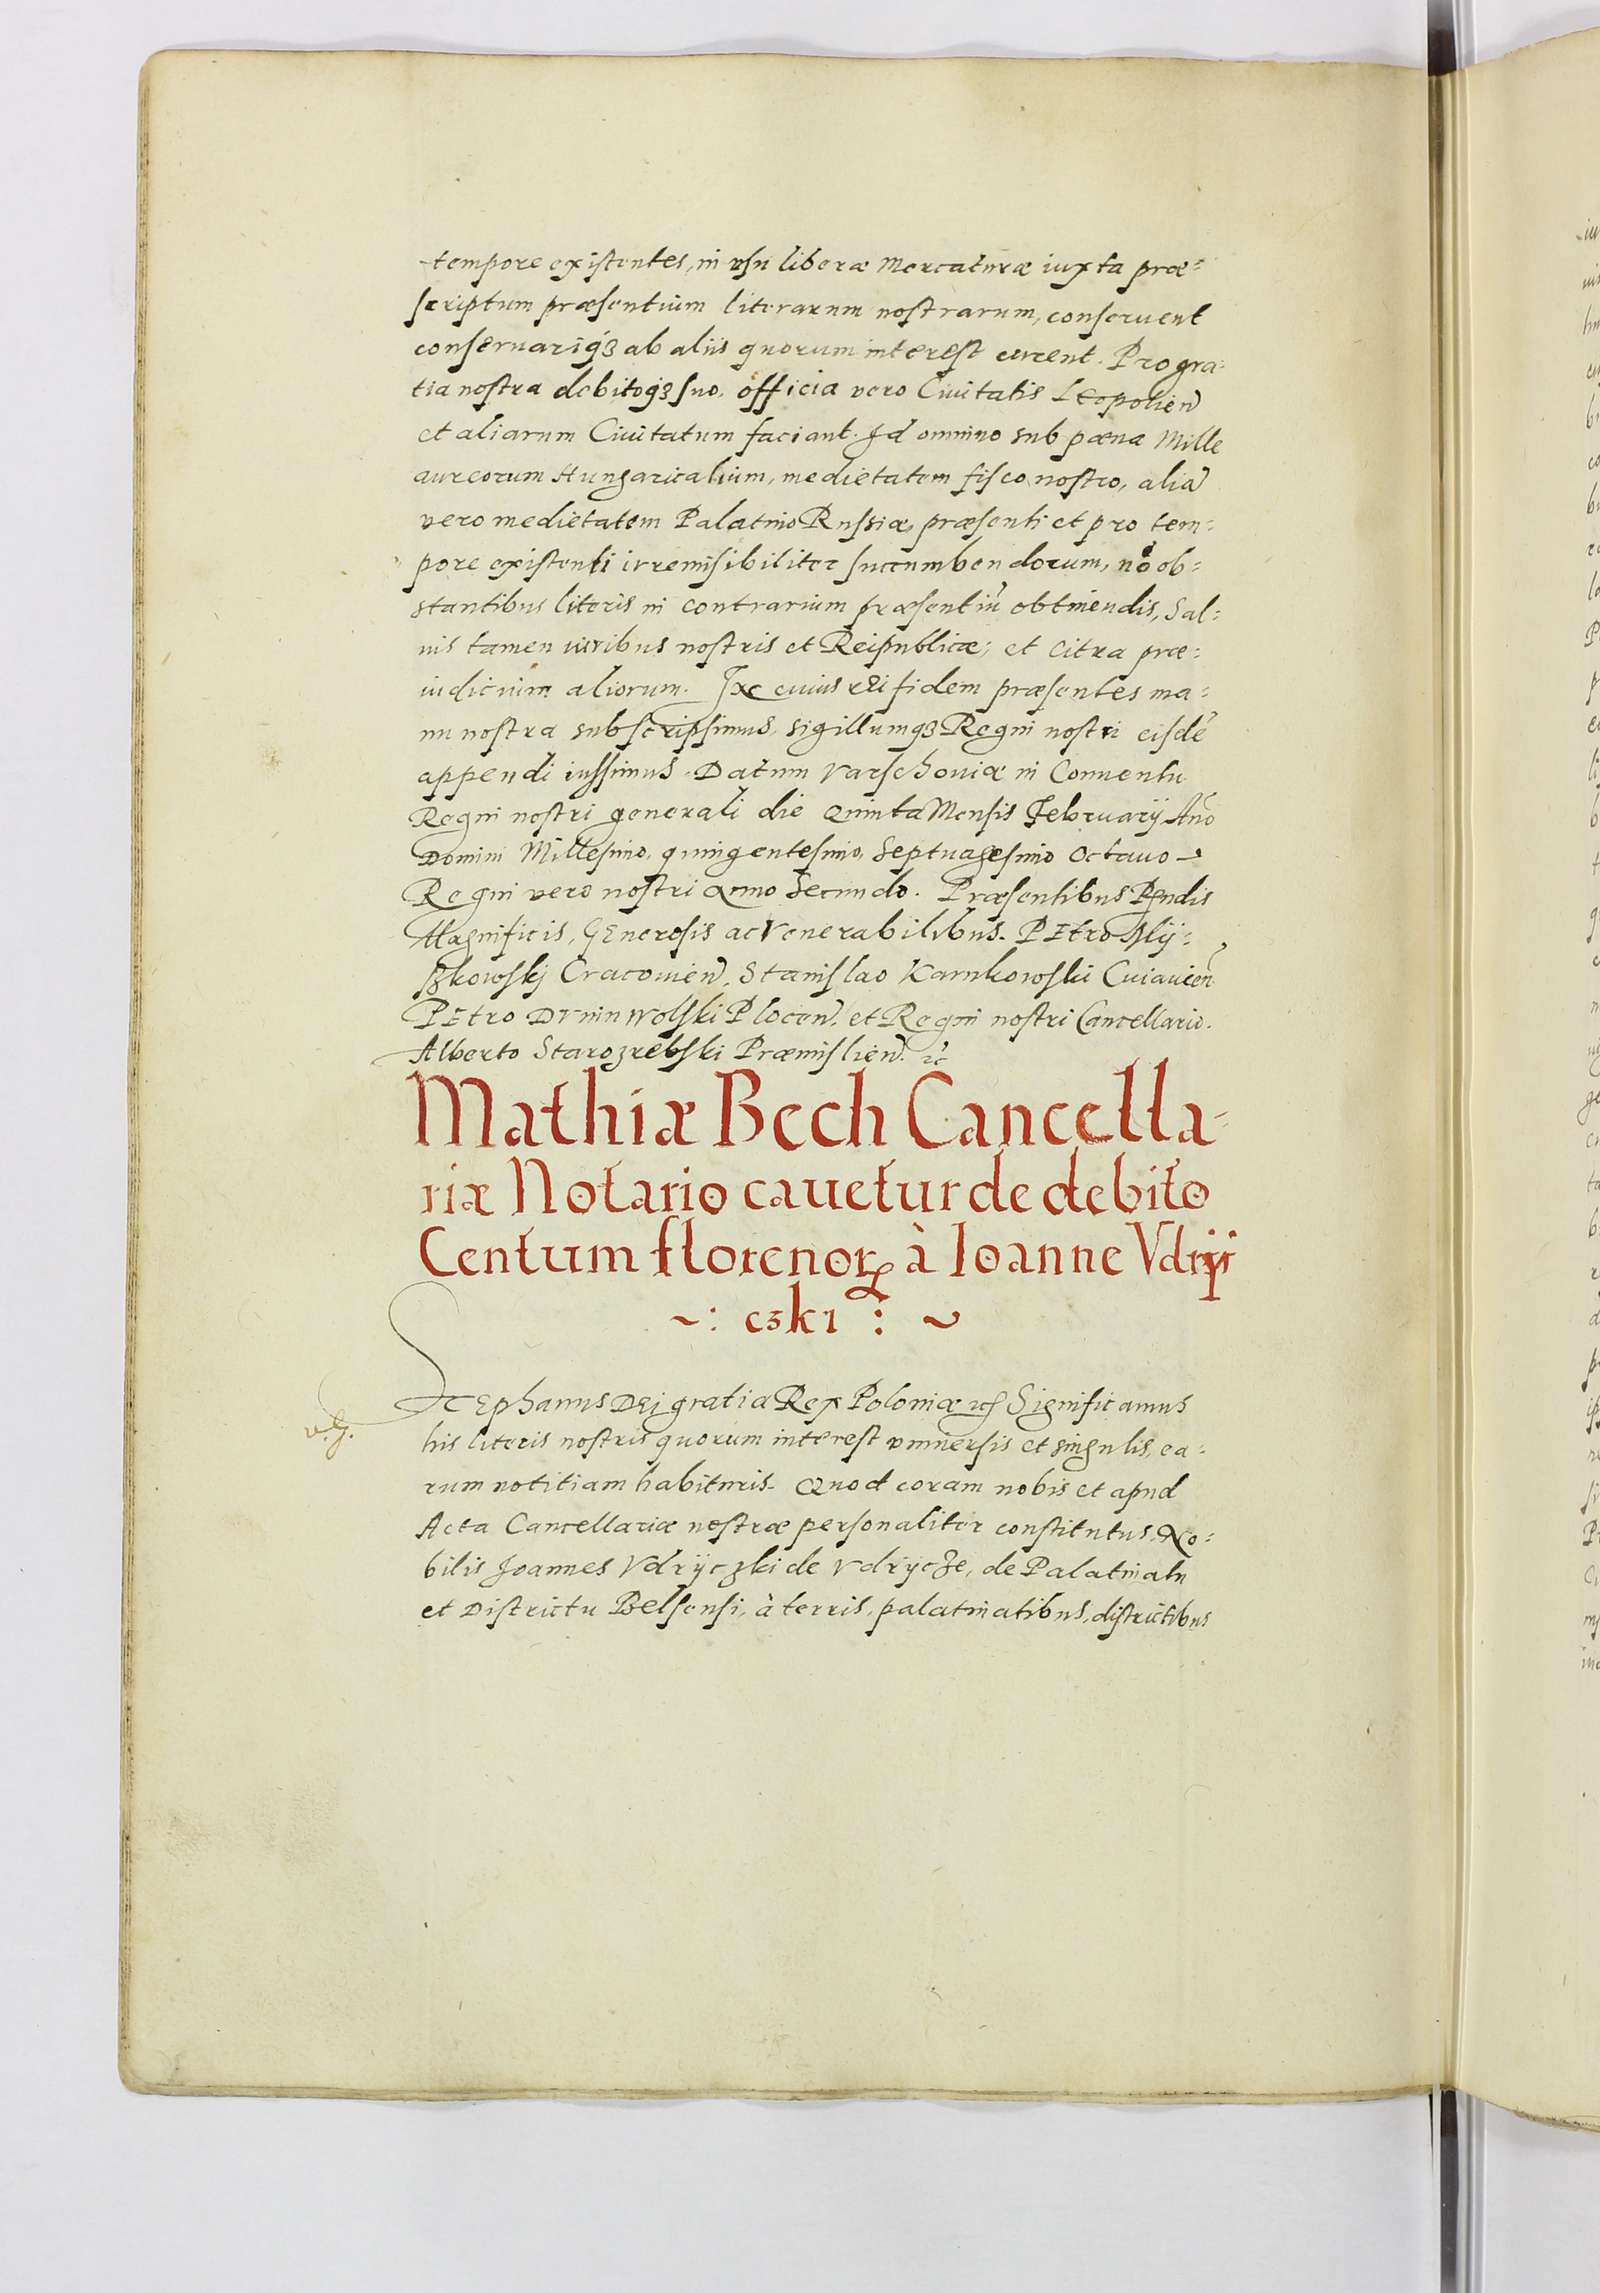 tempore existentes, in vsu liberæ Mercaturæ iuxta præ=
scriptum præsentium literarum nostrarum, conseruent
conseruariq₃ ab aliis quorum interest curent. Pro gra=
tia nostra debitoq₃ suo. officia vero Ciuitatis Leopolien̄
et aliarum Ciuitatum faciant. Id omnino sub pæna Mille
aureorum Hungaricalium, medietatem fisco nostro, aliā
vero medietatem Palatino Russiæ, præsenti et pro tem=
pore existenti irremisibiliter succumbendorum, nō ob=
stantibus literis in contrarium præsentiū obtinendis, Sal=
uis tamen iuribus nostris et Reipublicæ, et citra præ=
iudicium aliorum. In cuius rei fidem præsentes ma=
nu nostra subscripsimus, sigillumq₃ Regni nostri eisdē
appendi iussimus. Datum Varschouiæ in Conuentu
Regni nostri generali die Quinta Mensis Februarij Año
Domini Millesimo, quingentesimo, Septuagesimo Octauo
Regni vero nostri Anno Secundo. Præsentibus Rndis
Magnificis, Generosis ac Venerabilibus. Petro Mij=
szkowskj Cracouien̄. Stanislao Karnkowski Cuiauien̄
Petro Dvnin Wolski Plocen̄. et Regni nostri Cancellario.
Alberto Starozrebski Præmislien̄. ꝛc
Mathiæ Bech Cancella=
riæ Notario cauetur de debito
Centum florenorꝝ à Ioanne Vdrij
~: czki : ~
v. g.
Stephanus Dei gratia Rex Poloniæ ꝛc Significamus
his literis nostris quorum interest vniuersis et singulis, ea=
rum notitiam habituris. Quod coram nobis et apud
Acta Cancellariæ nostræ personaliter constitutus, No=
bilis Joannes Vdrijczki de Vdrijcze, de Palatinatu
et Districtu Belsensi, à terris, palatinatibus, districtibus